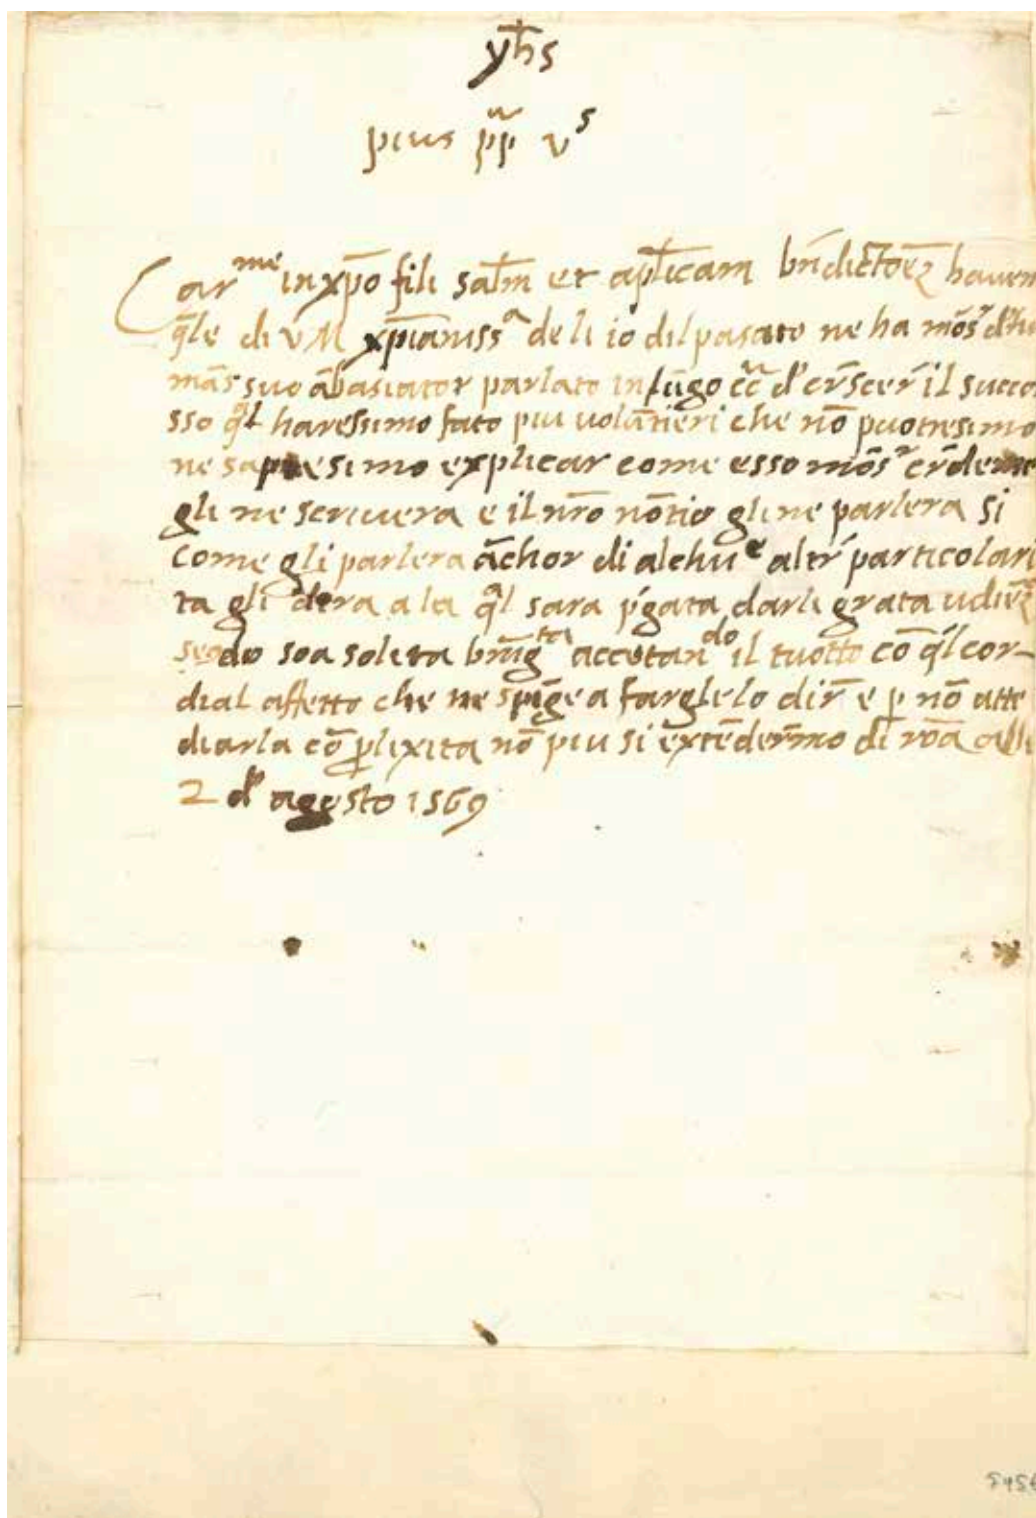 yh̄s
pius pp̄ vˢ
Carᵐᵉ in xp̄o fili sal̄m et apl̄icam bn̄dictōez havem
q̄le di VM xp̄ianissᵃ de li io dil pasato ne ha mōsʳ
suo ābasiator parlato in lūgo cr̄scer il succe
sso q̄l haressimo fato piu volātieri che nō puotresimo
ne sapresimo explicar come esso mōsʳ
gli ne scrivera e il nr̄o nōtio gli ne parlera si
come gli parlera āchor di alchuᵉ altr̄ particolari
ta gli a la q̄l sara p̄gata darli grata
soa solita accetanᵈᵒ il tuotto cō q̄l cor-
dial affetto che ne spīge a farglelo dir̄ e p̱ nō atte
diarla cō p̱lixita nō piu si extēder̄mo di rōa alli
2 d' agosto 1569